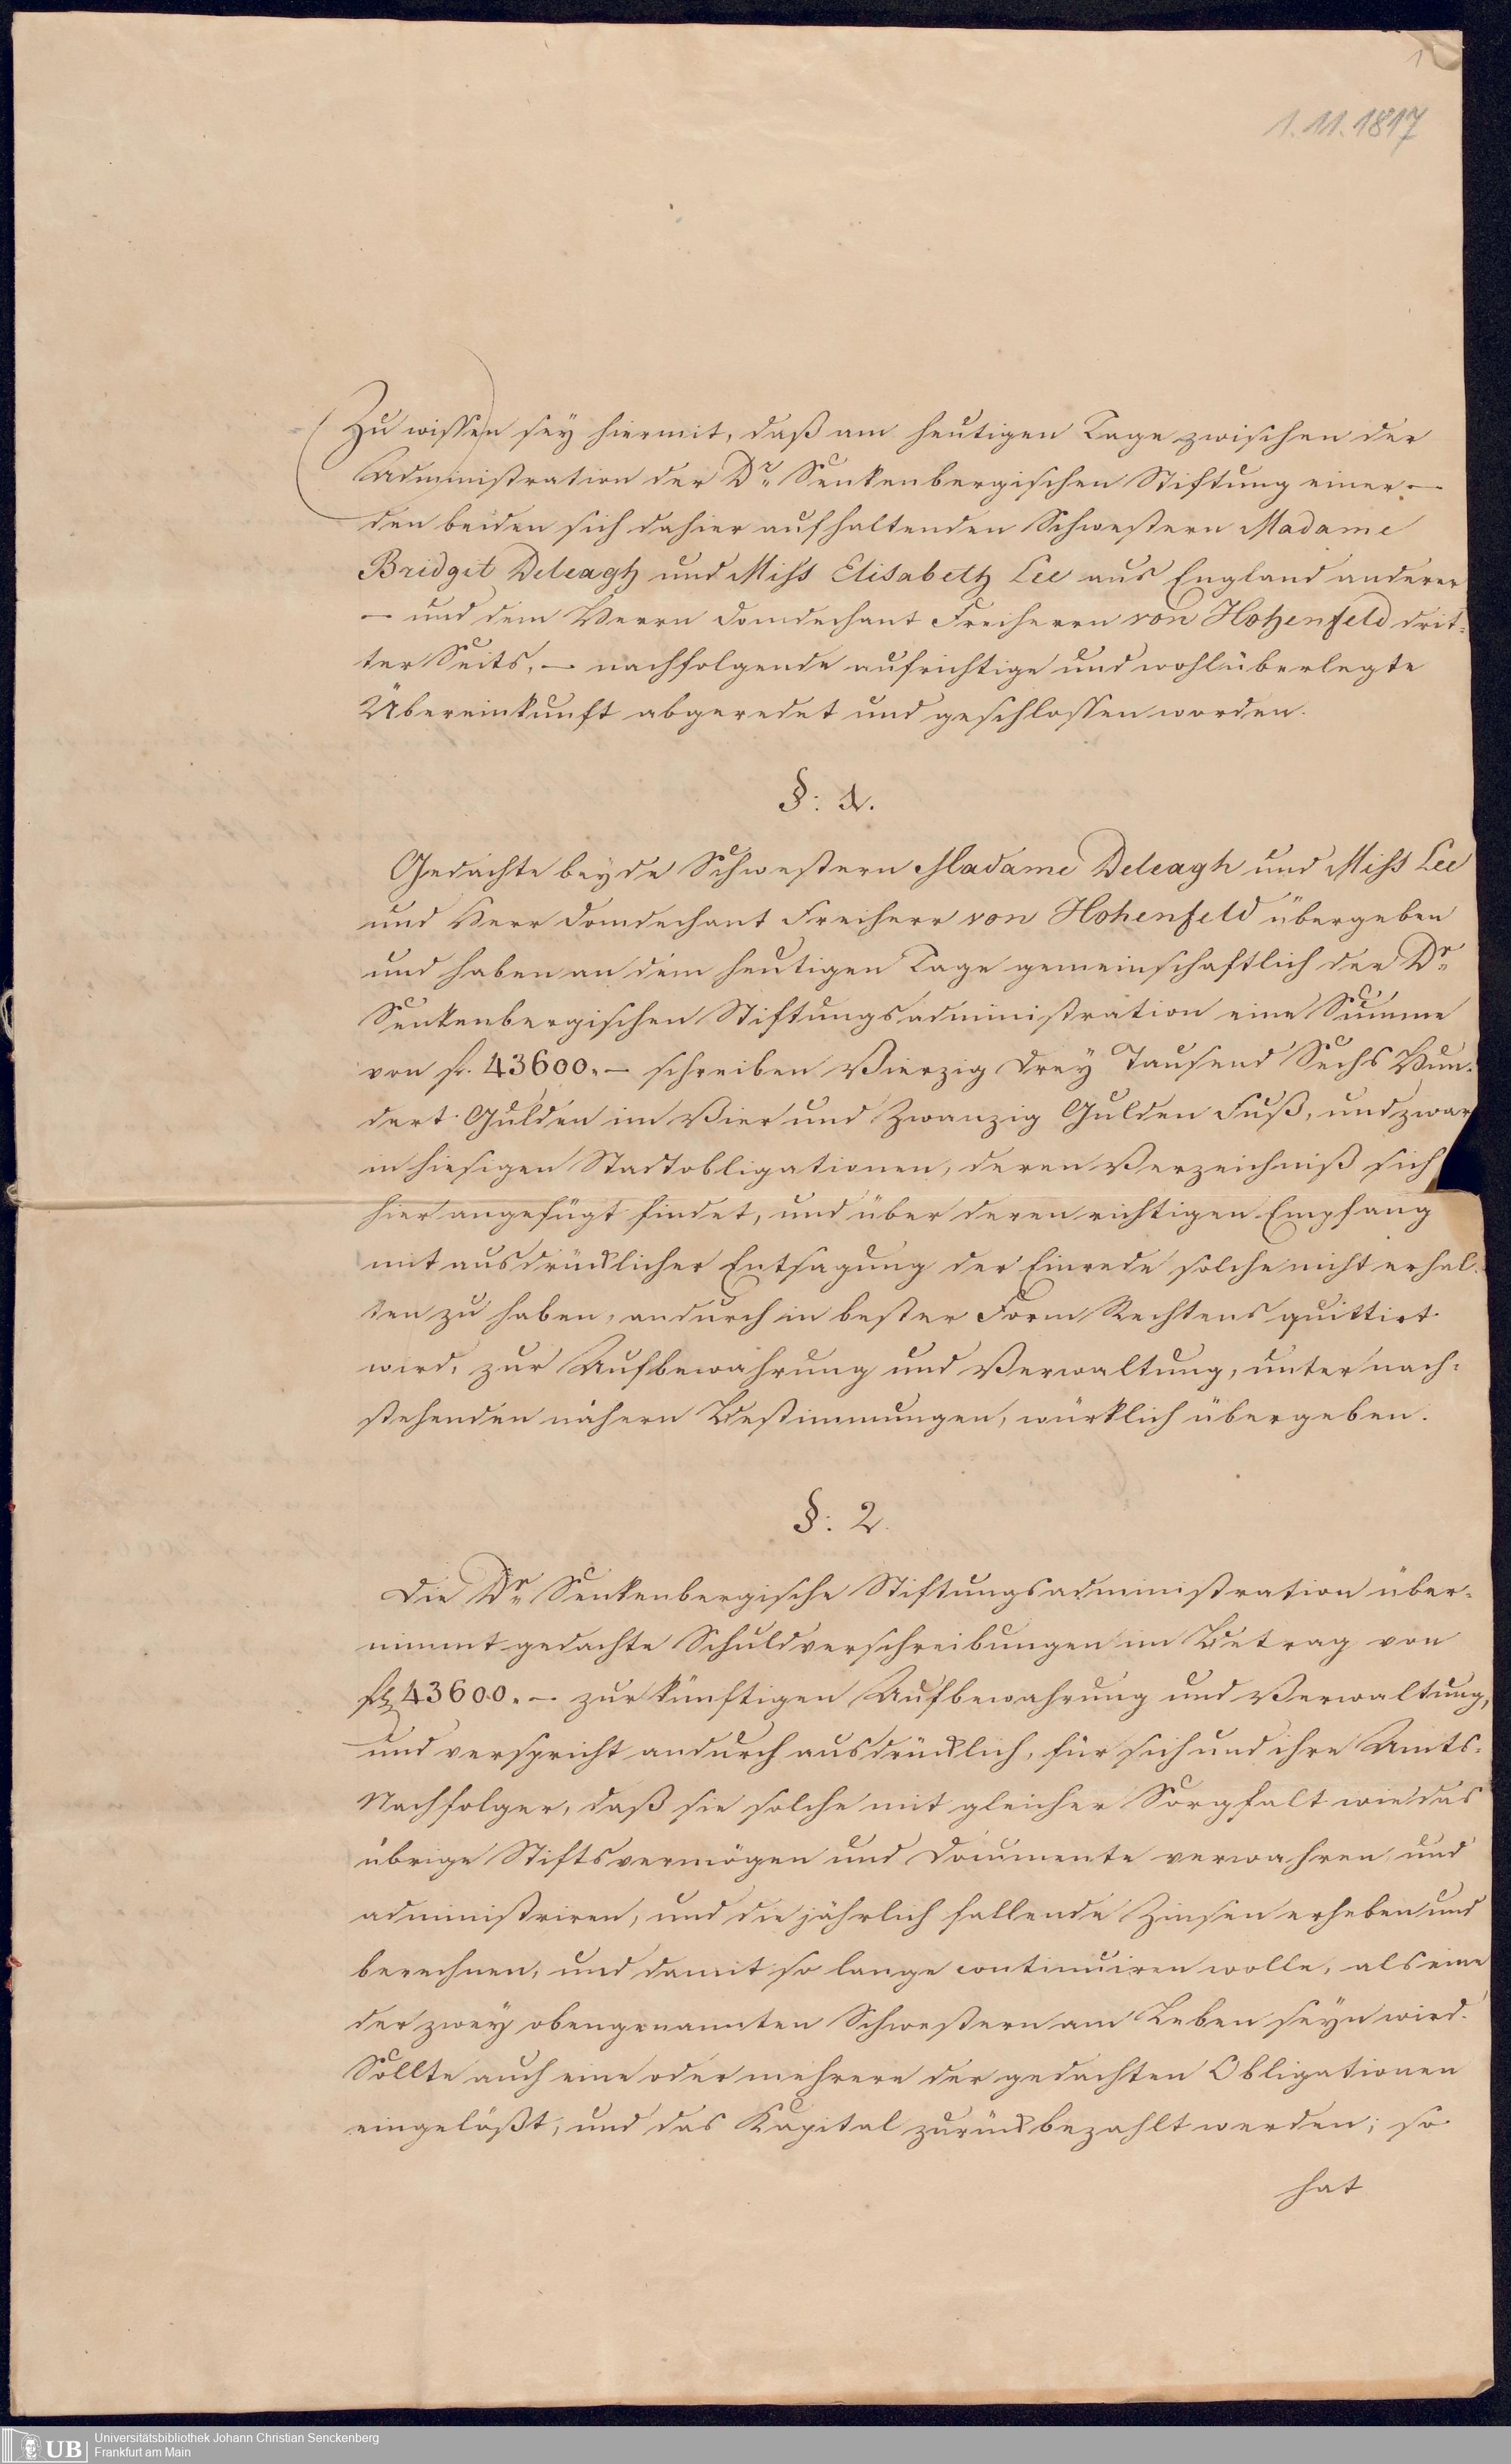 1
1. 11. 1817
Zu wissen sey hiermit, daß am heutigen Tage zwischen der
Administration der Dr. Senkenbergischen Stiftung einer —
den beiden sich dahier aufhaltenden Schwestern Madame
Bridgit Deleagh und Miss Elisabeth Lee aus England anderer
— und dem Herrn Domdechant Freiherrn von Hohenfeld drit-
ter Seits, — nachfolgende aufrichtige und wohlüberlegte
Übereinkunft abgeredet und geschlossen worden.
§: 1.
Gedachte beyde Schwestern Madame Deleagh und Miss Lee
und Herr Domdechant Freiherr von Hohenfeld übergeben
und haben an dem heutigen Tage gemeinschaftlich der Dr.
Senkenbergischen Stiftungsadministration eine Summe
von fl. 43600. — schreiben Vierzig Drey Tausend Sechs Hun-
dert Gulden im Vier und Zwanzig Gulden Fuß, und zwar
in hiesigen Stadtobligationen, deren Verzeichniß sich
hier angefügt findet, und über deren richtigen Empfang
mit ausdrücklicher Entsagung der Einrede solche nicht erhal-
ten zu haben, andurch in bester Form Rechtens quittirt
wird, zur Aufbewahrung und Verwaltung, unter nach-
stehenden nähern Bestimmungen, würklich übergeben.
§: 2.
Die Dr. Senkenbergische Stiftungsadministration über-
nimmt gedachte Schuldverschreibungen im Betrag von
fl. 43600. — zur künftigen Aufbewahrung und Verwaltung,
und verspricht andurch ausdrücklich, für sich und ihre Amts-
Nachfolger, daß sie solche mit gleicher Sorgfalt wie das
übrige Stiftsvermögen und Documente verwahren und
administriren, und die jährlich fallende Zinsen erheben und
berechnen, und damit so lange continuiren wolle, als eine
der zwey obengenannten Schwestern am Leben seyn wird.
Sollte auch eine oder mehrere der gedachten Obligationen
eingelößt, und das Kapital zurückbezahlt werden; so
hat
UB
Universitätsbibliothek Johann Christian Senckenberg
Frankfurt am Main